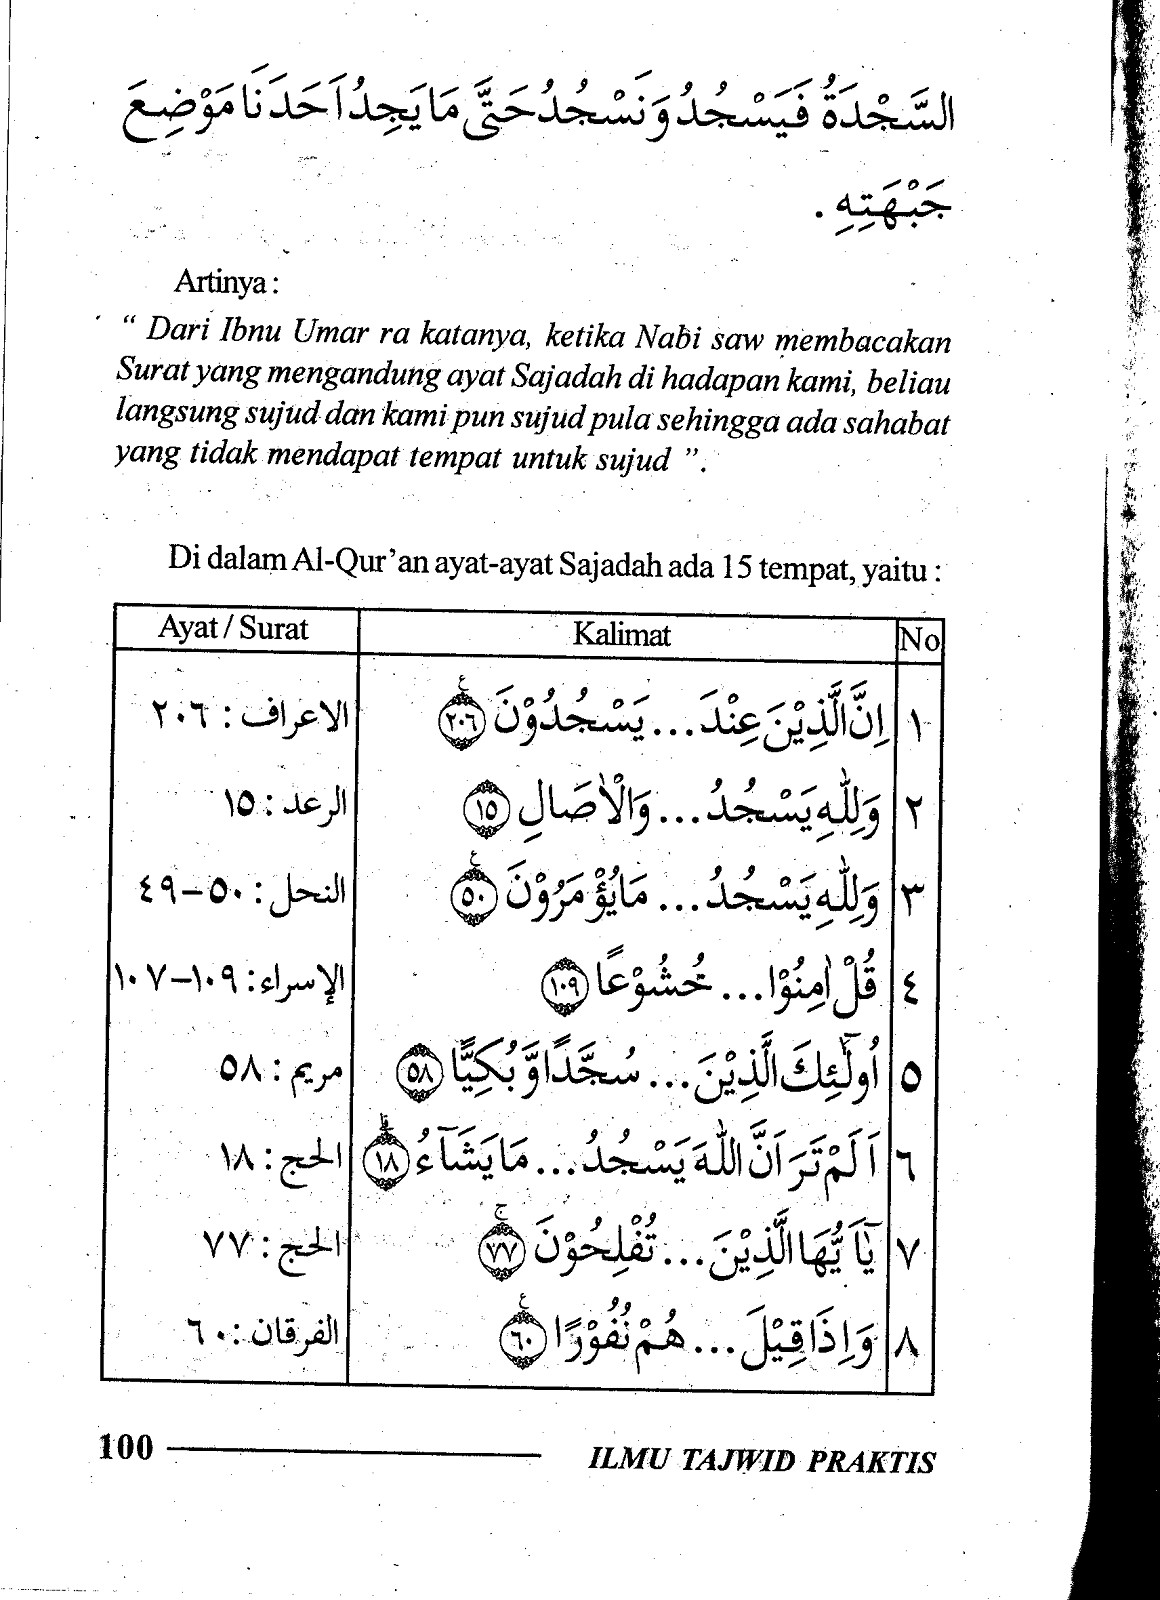 السَّجْدَةُ فَيَسْجُدُ وَنَسْجُدُ حَتَّى مَا يَجِدُ اَحَدَنَا مَوْضِعَ
جَبْهَتِهِ .
Artinya :
“ Dari Ibnu Umar ra katanya, ketika Nabi saw membacakan
Surat yang mengandung ayat Sajadah di hadapan kami, beliau
langsung sujud dan kami pun sujud pula sehingga ada sahabat
yang tidak mendapat tempat untuk sujud ”.
Di dalam Al-Qur’an ayat-ayat Sajadah ada 15 tempat, yaitu :
Ayat / Surat Kalimat No
١ اِنَّ الَّذِيْنَ عِنْدَ ... يَسْجُدُوْنَ ۩ ٢٠٦ الاعراف : ٢٠٦
٢ وَلِلّٰهِ يَسْجُدُ ... وَالْاٰصَالِ ١٥ الرعد : ١٥
٣ وَلِلّٰهِ يَسْجُدُ ... مَا يُؤْمَرُوْنَ ٥٠ النحل : ٥٠-٤٩
٤ قُلْ اٰمِنُوْا ... خُشُوْعًا ١٠٩ الإسراء : ١٠٩-١٠٧
٥ اُولٰٓئِكَ الَّذِيْنَ ... سُجَّدًا وَّبُكِيًّا ٥٨ مريم : ٥٨
٦ اَلَمْ تَرَ اَنَّ اللّٰهَ يَسْجُدُ ... مَا يَشَآءُ ١٨ الحج : ١٨
٧ يٰٓاَيُّهَا الَّذِيْنَ ... تُفْلِحُوْنَ ٧٧ الحج : ٧٧
٨ وَاِذَا قِيْلَ ... هُمْ نُفُوْرًا ٦٠ الفرقان : ٦٠
100 ILMU TAJWID PRAKTIS